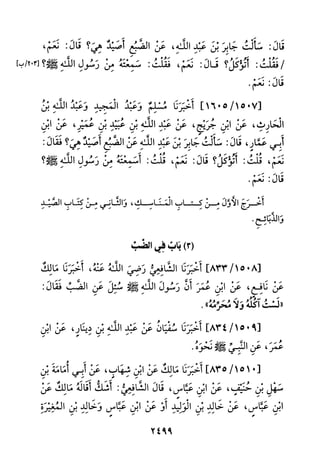 قَالَ: سَأَلْتُ جَابِرَ بْنَ عَبْدِ اللَّهِ، عَنْ الضَّبُعِ أَصَيْدٌ هِيَ؟ قَالَ: نَعَمْ،
/ فَقُلْتُ: أَتُؤْكَلُ؟ قَالَ: نَعَمْ، فَقُلْتُ: سَمِعْتَهُ مِنْ رَسُولِ اللَّهِ ﷺ؟ [٢٠٣/ب]
قَالَ: نَعَمْ.
[١٦٠٥/١٥٠٧] أَخْبَرَنَا مُسْلِمٌ وَعَبْدُ الْمَجِيدِ وَعَبْدُ اللَّهِ بْنُ
الْحَارِثِ، عَنْ ابْنِ جُرَيْجٍ، عَنْ عَبْدِ اللَّهِ بْنِ عُبَيْدِ بْنِ عُمَيْرٍ، عَنْ ابْنِ
أَبِي عَمَّارٍ، قَالَ: سَأَلْتُ جَابِرَ بْنَ عَبْدِ اللَّهِ عَنْ الضَّبُعِ أَصَيْدٌ هِيَ؟ فَقَالَ:
نَعَمْ، قُلْتُ: أَتُؤْكَلُ؟ قَالَ: نَعَمْ، قُلْتُ: أَسَمِعْتَهُ مِنْ رَسُولِ اللَّهِ ﷺ؟
قَالَ: نَعَمْ.
أَخْرَجَ الأَوَّلَ مِنْ كِتَابِ الْمَنَاسِكِ، وَالثَّانِي مِنْ كِتَابِ الصَّيْدِ
وَالذَّبَائِحِ.
(٣) بَابٌ فِي الضَّبِّ
[٨٣٣/١٥٠٨] أَخْبَرَنَا الشَّافِعِيُّ رَضِيَ اللَّهُ عَنْهُ، أَخْبَرَنَا مَالِكٌ
عَنْ نَافِعٍ، عَنْ ابْنِ عُمَرَ أَنَّ رَسُولَ اللَّهِ ﷺ سُئِلَ عَنِ الضَّبِّ فَقَالَ:
«لَسْتُ آكُلُهُ وَلَا مُحَرِّمُهُ».
[٨٣٤/١٥٠٩] أَخْبَرَنَا سُفْيَانُ عَنْ عَبْدِ اللَّهِ بْنِ دِينَارٍ، عَنْ ابْنِ
عُمَرَ، عَنِ النَّبِيِّ ﷺ نَحْوَهُ.
[٨٣٥/١٥١٠] أَخْبَرَنَا مَالِكٌ عَنْ ابْنِ شِهَابٍ، عَنْ أَبِي أُمَامَةَ بْنِ
سَهْلِ بْنِ حُنَيْفٍ، عَنْ ابْنِ عَبَّاسٍ، قَالَ الشَّافِعِيُّ: أَشُكُّ أَقَالَهُ مَالِكٌ عَنْ
ابْنِ عَبَّاسٍ، عَنْ خَالِدِ بْنِ الْوَلِيدِ أَوْ عَنْ ابْنِ عَبَّاسٍ وَخَالِدِ بْنِ الْمُغِيْرَةِ
٢٤٩٩